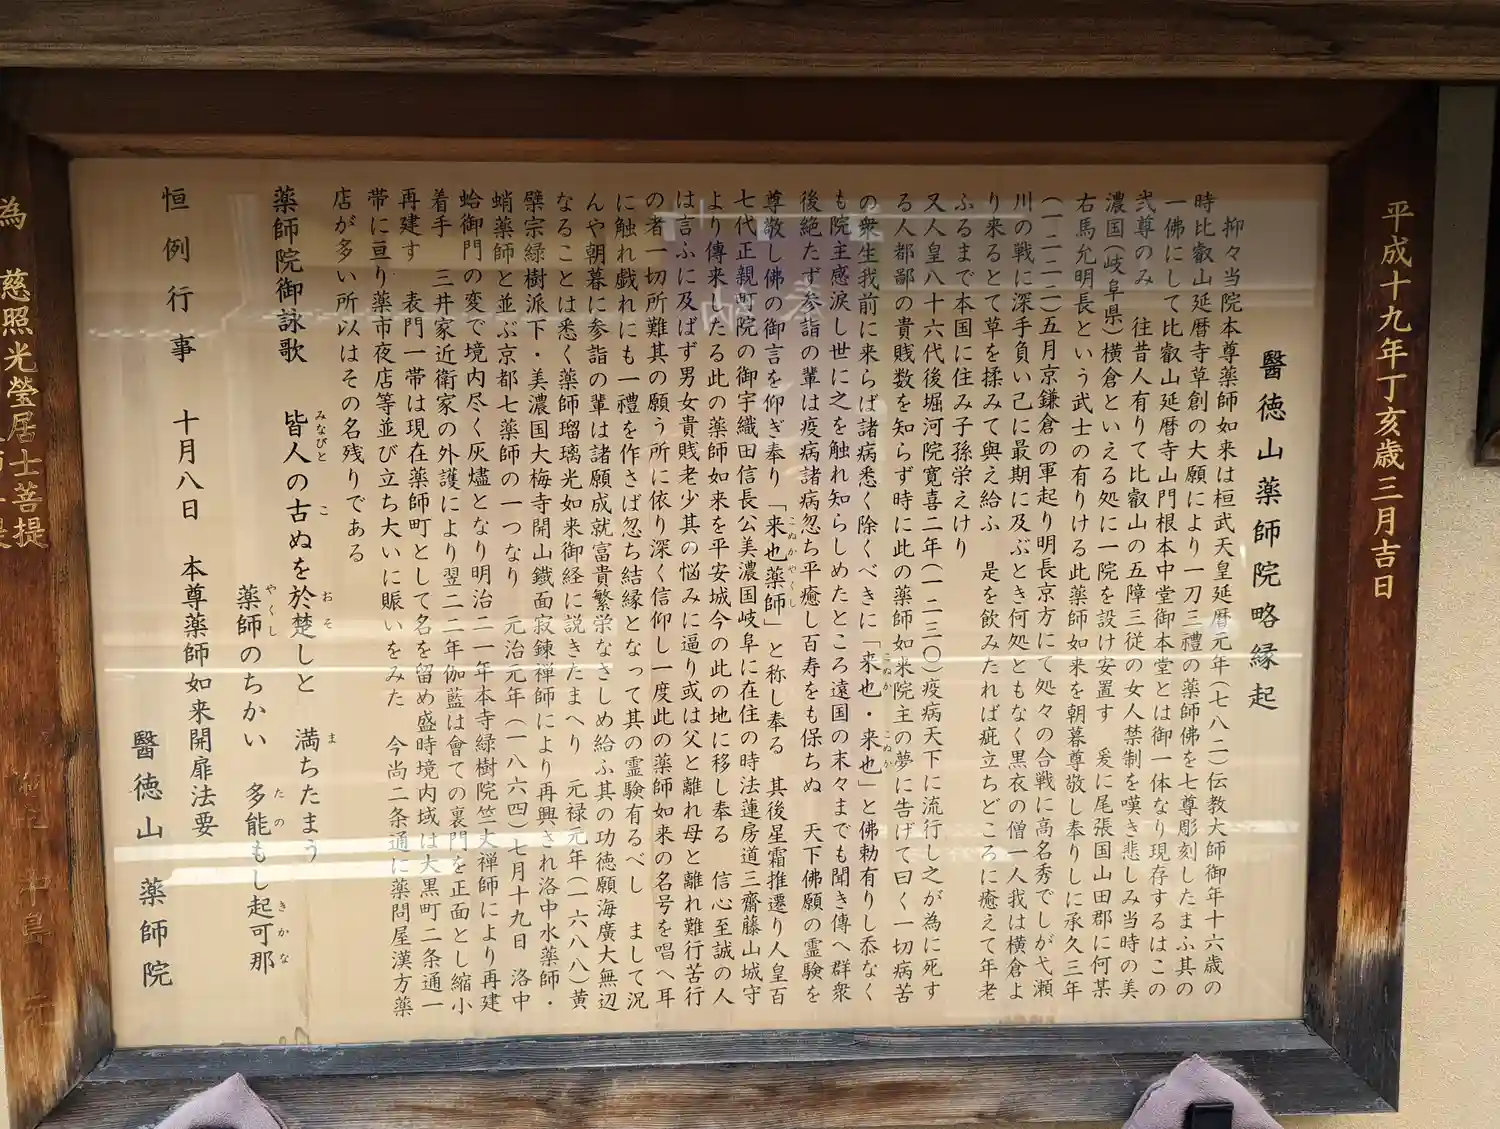 平成十九年丁亥歳三月吉日
醫徳山薬師院略縁起
抑々当院本尊薬師如来は桓武天皇延暦元年(七八二)伝教大師御年十六歳の
時比叡山延暦寺草創の大願により一刀三禮の薬師佛を七尊彫刻したまふ其の
一佛にして比叡山延暦寺山門根本中堂御本堂とは御一体なり現存するはこの
弐尊のみ 往昔人有りて比叡山の五障三従の女人禁制を嘆き悲しみ当時の美
濃国(岐阜県)横倉といえる処に一院を設け安置す 爰に尾張国山田郡に何某
右馬允明長という武士の有りける此薬師如来を朝暮尊敬し奉りしに承久三年
(一二二一)五月京鎌倉の軍起り明長京方にて処々の合戦に高名秀でしが弋瀬
川の戦に深手負い己に最期に及ぶとき何処ともなく黒衣の僧一人我は横倉よ
り来るとて草を揉みて與え給ふ 是を飲みたれば疵立ちどころに癒えて年老
ふるまで本国に住み子孫栄えけり
又人皇八十六代後堀河院寛喜二年(一二三〇)疫病天下に流行し之が為に死す
る人都鄙の貴賎数を知らず時に此の薬師如来院主の夢に告げて曰く一切病苦
の衆生我前に来らば諸病悉く除くべきに「来也・来也」と佛勅有りし忝なく
も院主感涙し世に之を触れ知らしめたところ遠国の末々までも聞き傳へ群衆
後絶たず参詣の輩は疫病諸病忽ち平癒し百寿をも保ちぬ 天下佛願の霊験を
尊敬し佛の御言を仰ぎ奉り「来也薬師」と称し奉る 其後星霜推遷り人皇百
七代正親町院の御宇織田信長公美濃国岐阜に在住の時法蓮房道三齋藤山城守
より傳来したる此の薬師如来を平安城今の此の地に移し奉る 信心至誠の人
は言ふに及ばず男女貴賎老少其の悩みに逼り或は父と離れ母と離れ難行苦行
の者一切所難其の願う所に依り深く信仰し一度此の薬師如来の名号を唱へ耳
に触れ戯れにも一禮を作さば忽ち結縁となって其の霊験有るべし まして況
んや朝暮に参詣の輩は諸願成就富貴繁栄なさしめ給ふ其の功徳願海廣大無辺
なることは悉く薬師瑠璃光如来御経に説きたまへり 元禄元年(一六八八)黄
檗宗緑樹派下・美濃国大梅寺開山鐡面寂錬禅師により再興され洛中水薬師・
蛸薬師と並ぶ京都七薬師の一つなり 元治元年(一八六四)七月十九日 洛中
蛤御門の変で境内尽く灰燼となり明治二一年本寺緑樹院竺丈禅師により再建
着手 三井家近衛家の外護により翌二二年伽藍は會ての裏門を正面とし縮小
再建す 表門一帯は現在薬師町として名を留め盛時境内域は大黒町二条通一
帯に亘り薬市夜店等並び立ち大いに賑いをみた 今尚二条通に薬問屋漢方薬
店が多い所以はその名残りである
薬師院御詠歌 皆人の古ぬを於楚しと 満ちたまう
薬師のちかい 多能もし起可那
恒例行事 十月八日 本尊薬師如来開扉法要
醫徳山 薬師院
為 慈照光瑩居士菩提